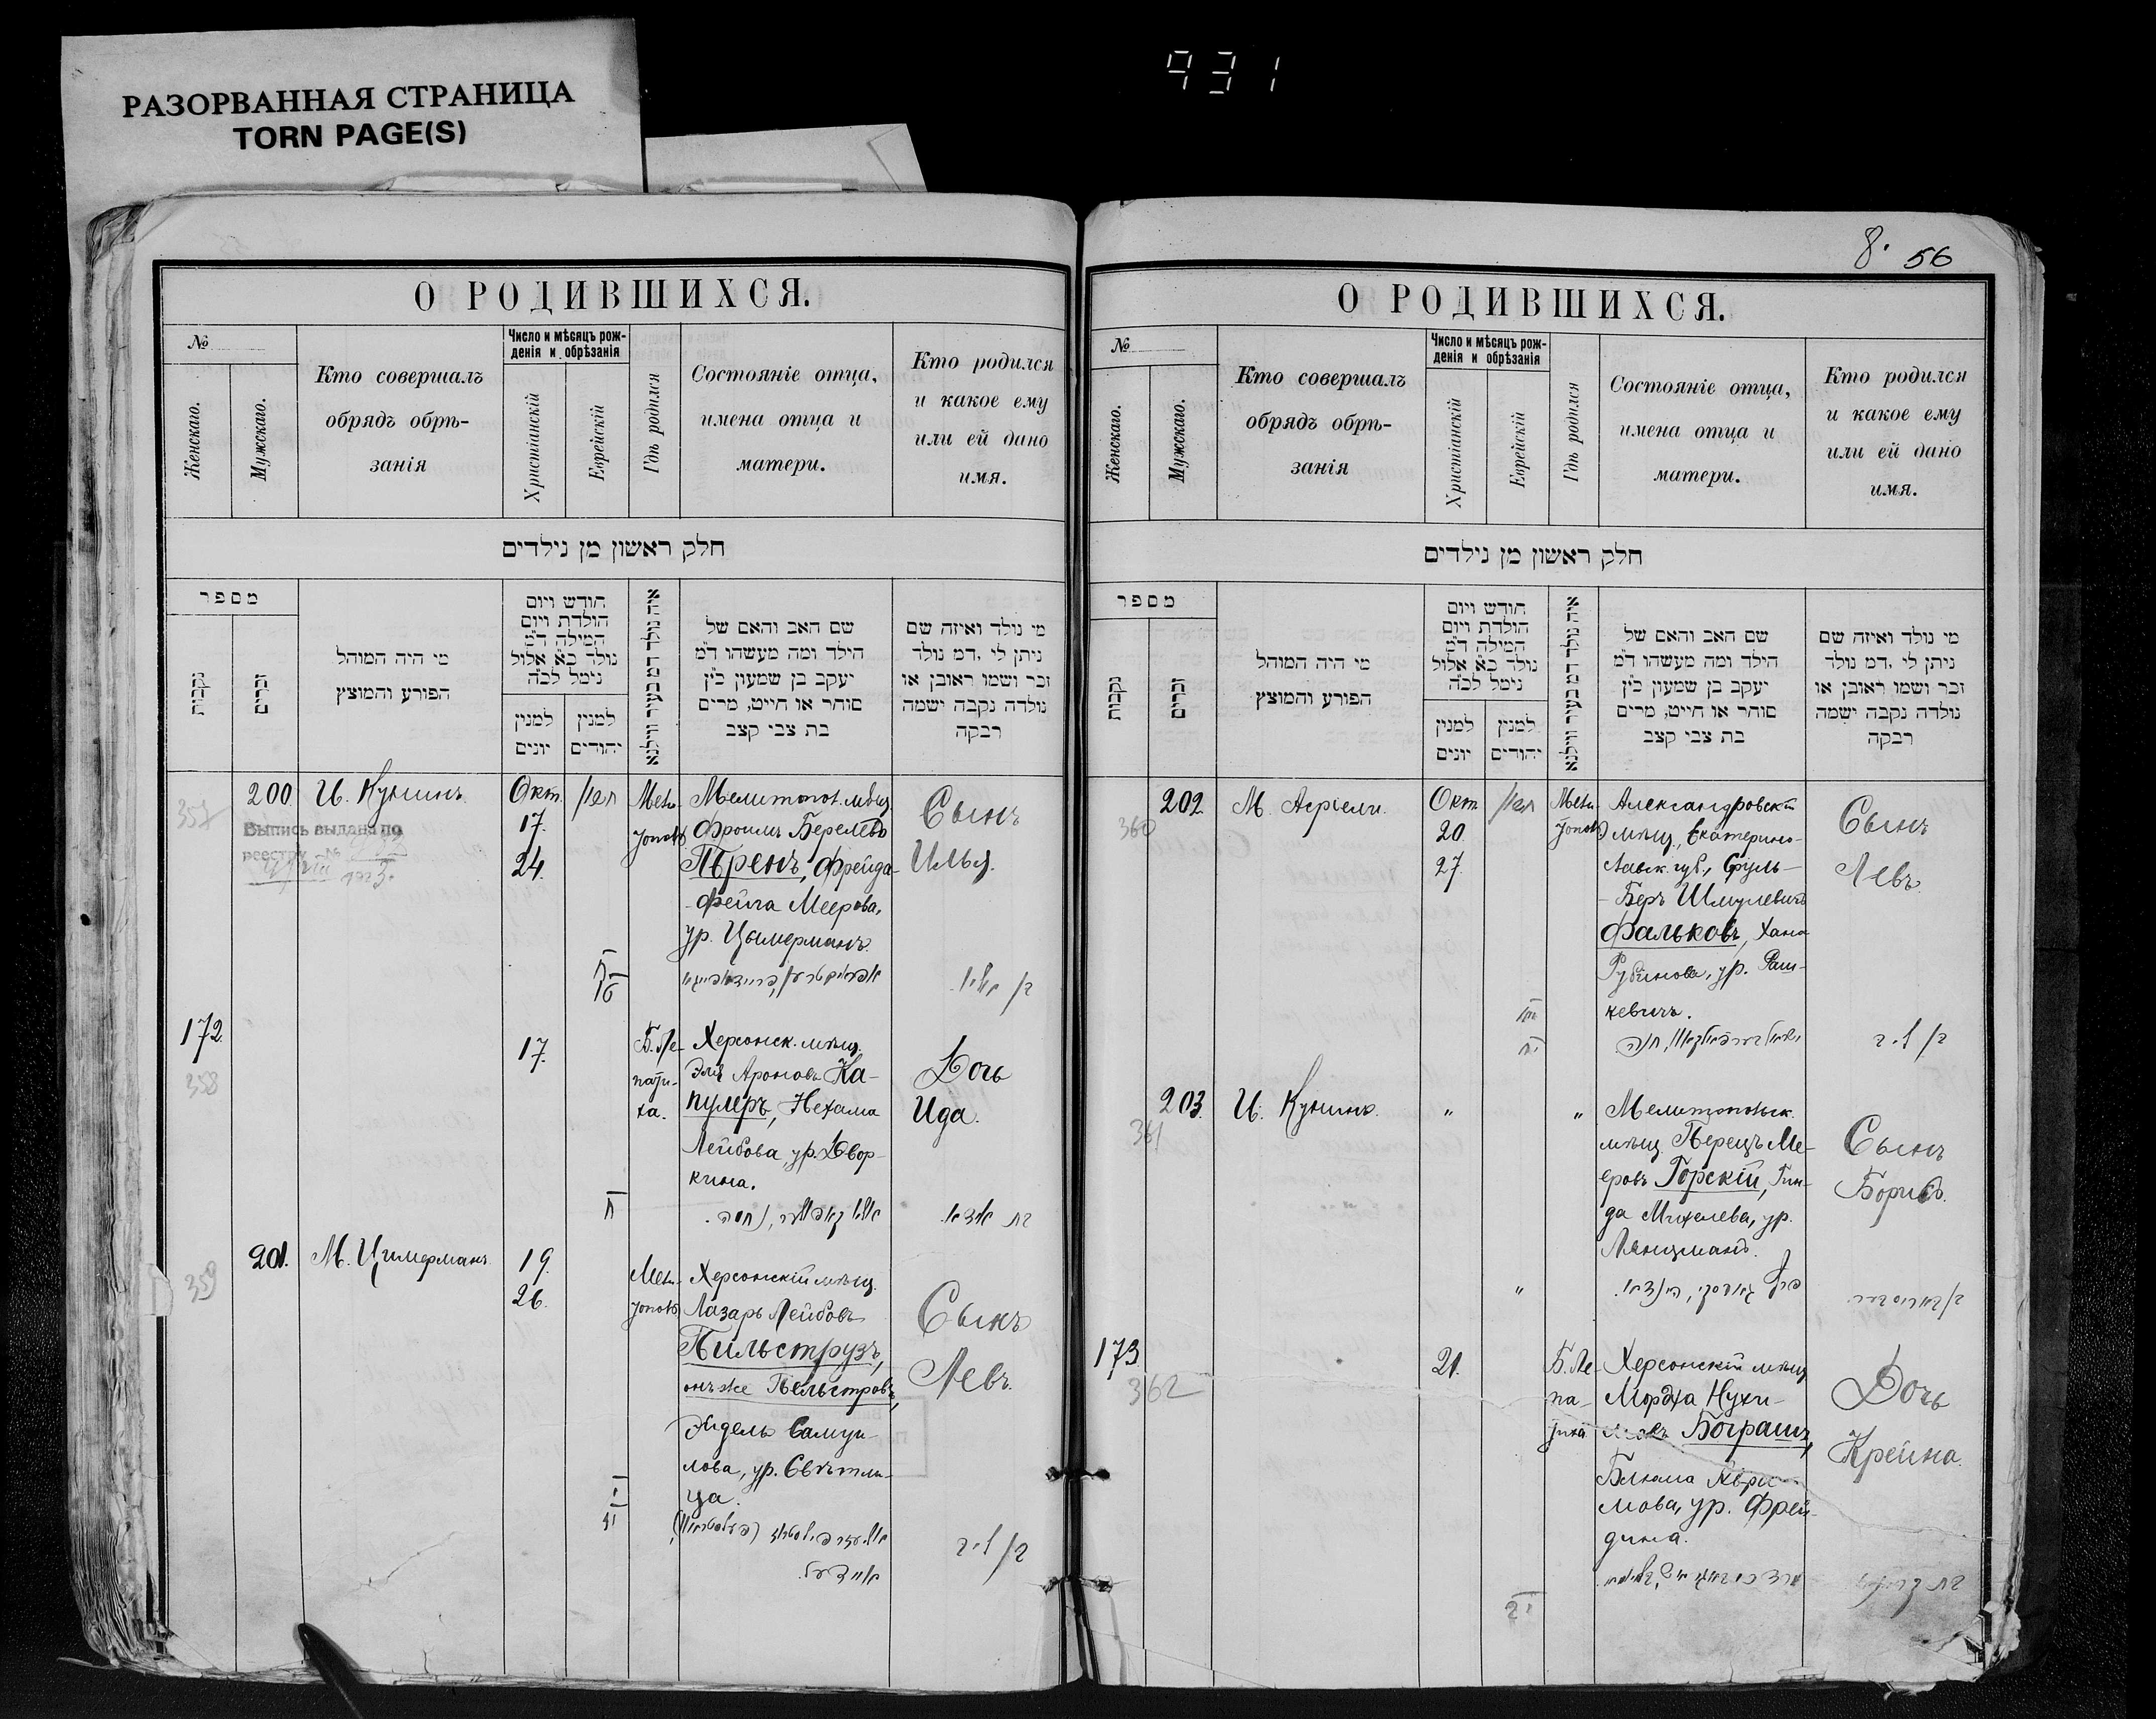 РАЗОРВАННАЯ СТРАНИЦА
TORN PAGE(S)
931
О РОДИВШИХСЯ.
№
Женскаго.
Мужскаго.
Кто совершалъ
обрядъ обрѣ-
занія
Число и мѣсяцъ рож-
денія и обрѣзанія
Христіанскій
Еврейскій
Гдѣ родился
Состояніе отца,
имена отца и
матери.
Кто родился
и какое ему
или ей дано
имя.
חלק ראשון מן נילדים
מספר
נקבות
זכרים
מי היה המוהל
הפורע והמוצץ
חודש ויום
הולדת ויום
המילה ד״מ
נולד כ״א אלול
נימל לכ״ה
למנין
יונים
למנין
יהודים
איה נולד דמ בעיר ווילנא
שם האב והאם של
הילד ומה מעשהו ד״מ
יעקב בן שמעון כ״ץ
סוחר או חייט, מרים
בת צבי קצב
מי נולד ואיזה שם
ניתן לי ,דמ נולד
זכר ושמו ראובן או
נולדה נקבה ישמה
רבקה
357
200
И. Кунинъ.
Окт.
17.
24.
Мели-
тополь
Мелитопол. мѣщ.
Фроимъ Берелевъ
Пѣренъ, Фрейда-
-Фейга Меерова,
ур. Цымерманъ.
Сынъ
Илья.
Выпись выдана по
реестру №
1923
172.
358
17.
Б. Ле-
пати-
ха.
Херсонск. мѣщ.
Эля Ароновъ Ка-
пулеръ, Нехама
Лейбова, ур. Двор-
кина.
Дочь
Ида.
359
201.
М. Цимерманъ
19.
26.
Мели-
тополь
Херсонскій мѣщ.
Лазарь Лейбовъ
Пильструзъ,
онъ же Пельстровъ,
Эйдель Самуи-
лова, ур. Свѣтли-
ца.
Сынъ
Левъ.
8. 56
О РОДИВШИХСЯ.
№
Женскаго.
Мужскаго.
Кто совершалъ
обрядъ обрѣ-
занія
Число и мѣсяцъ рож-
денія и обрѣзанія
Христіанскій
Еврейскій
Гдѣ родился
Состояніе отца,
имена отца и
матери.
Кто родился
и какое ему
или ей дано
имя.
חלק ראשון מן נילדים
מספר
נקבות
זכרים
מי היה המוהל
הפורע והמוצץ
חודש ויום
הולדת ויום
המילה ד״מ
נולד כ״א אלול
נימל לכ״ה
למנין
יונים
למנין
יהודים
איה נולד דמ בעיר ווילנא
שם האב והאם של
הילד ומה מעשהו ד״מ
יעקב בן שמעון כ״ץ
סוחר או חייט, מרים
בת צבי קצב
מי נולד ואיזה שם
ניתן לי ,דמ נולד
זכר ושמו ראובן או
נולדה נקבה ישמה
רבקה
360
202.
М. Азріели.
Окт.
20.
27.
Мели-
тополь
Александровскій
мѣщ., Екатерино-
славск. губ., Сруль-
-Беръ Шмулевичъ
Фальковъ, Хана
Рубинова, ур. Раш-
кевичъ.
Сынъ
Левъ.
361
203.
И. Кунинъ.
"
"
Мелитопольск.
мѣщ. Перецъ Ме-
еровъ Горскій, Гин-
да Михелева, ур.
Лянцманъ.
Сынъ
Борисъ.
173.
362
21.
Б. Ле-
па-
тиха
Херсонскій мѣщ.
Мордха Нухи-
мовъ Боград,
Блюма Абра-
мова, ур. Фрей-
дина.
Дочь
Крейна.